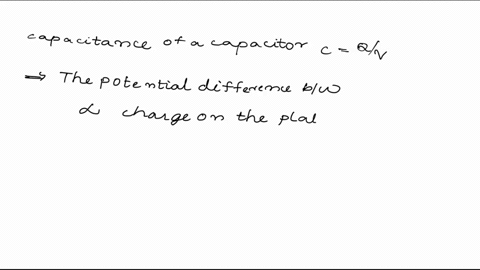 capacitance of a capacitor C = Q/V
⇒ The potential difference b/w
∝ charge on the plat